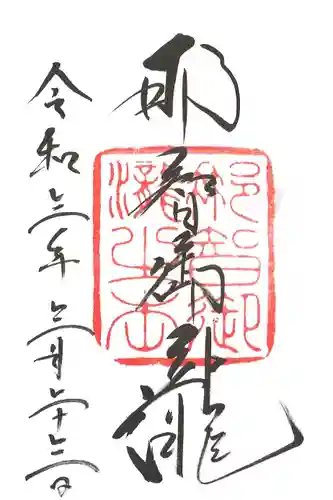 那智御瀧
令和三年三月二十三日